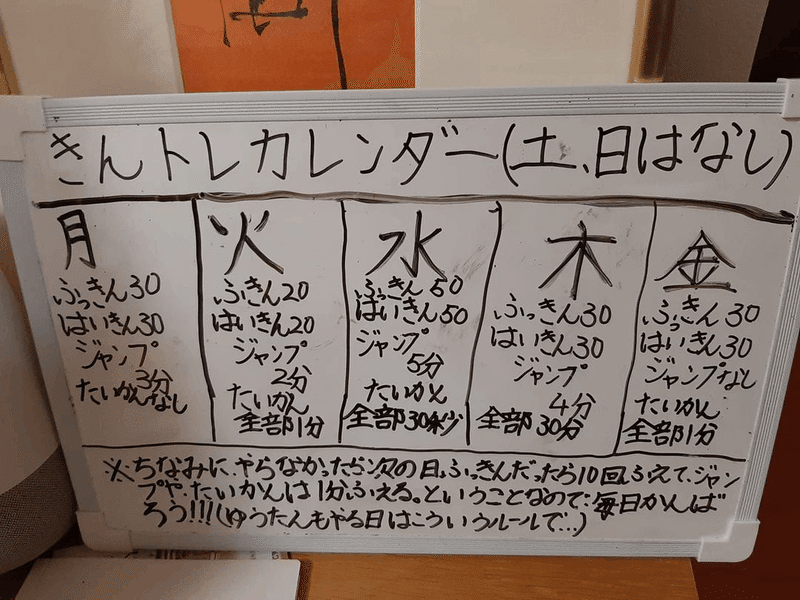 きんトレカレンダー(土、日はなし)
月
ふっきん30
はいきん30
ジャンプ
3分
たいかんなし
火
ふっきん20
はいきん20
ジャンプ
2分
たいかん
全部1分
水
ふっきん50
はいきん50
ジャンプ
5分
たいかん
全部30秒
木
ふっきん30
はいきん30
ジャンプ
4分
全部30分
金
ふっきん30
はいきん30
ジャンプなし
たいかん
全部1分
※ちなみに、やらなかったら次の日、ふっきんだったら10回ふえて、ジャン
プや、たいかんは1分ふえる。ということなので、毎日がんば
ろう!!!(ゆうたんもやる日はこういうルールで…)